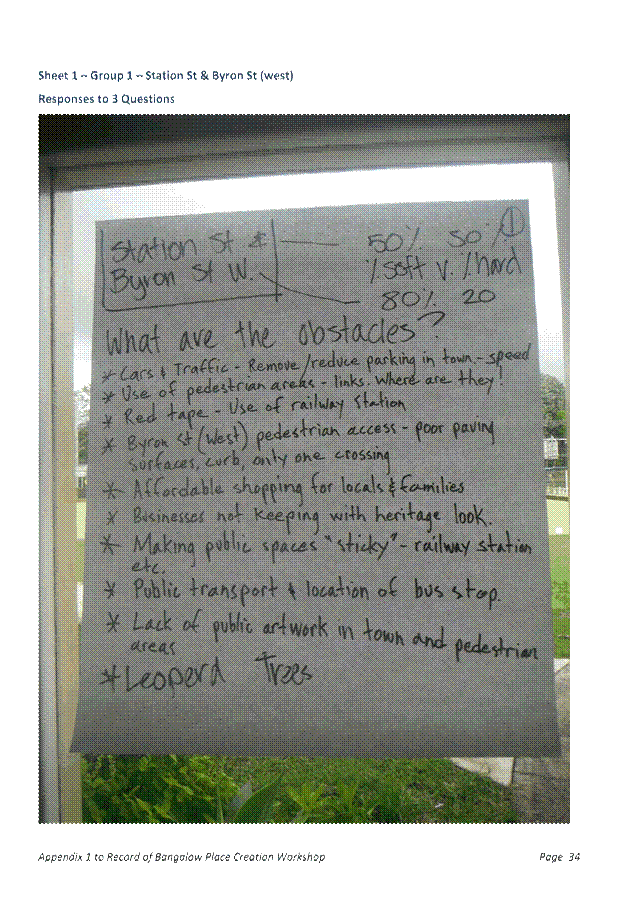 Sheet 1 – Group 1 – Station St & Byron St (west)
Responses to 3 Questions
Station St & 50% 50% 1
Byron St W. % soft v. % hard
80% 20
What are the obstacles?
* Cars & Traffic - Remove/reduce parking in town. - speed
* Use of pedestrian areas - links. Where are they!
* Red tape - Use of railway station
* Byron St (West) pedestrian access - poor paving
surfaces, curb, only one crossing
* Affordable shopping for locals & families
* Businesses not keeping with heritage look.
* Making public spaces "sticky" - railway station
etc.
* Public transport & location of bus stop.
* Lack of public artwork in town and pedestrian
areas
* Leopard Trees
Appendix 1 to Record of Bangalow Place Creation Workshop Page 34